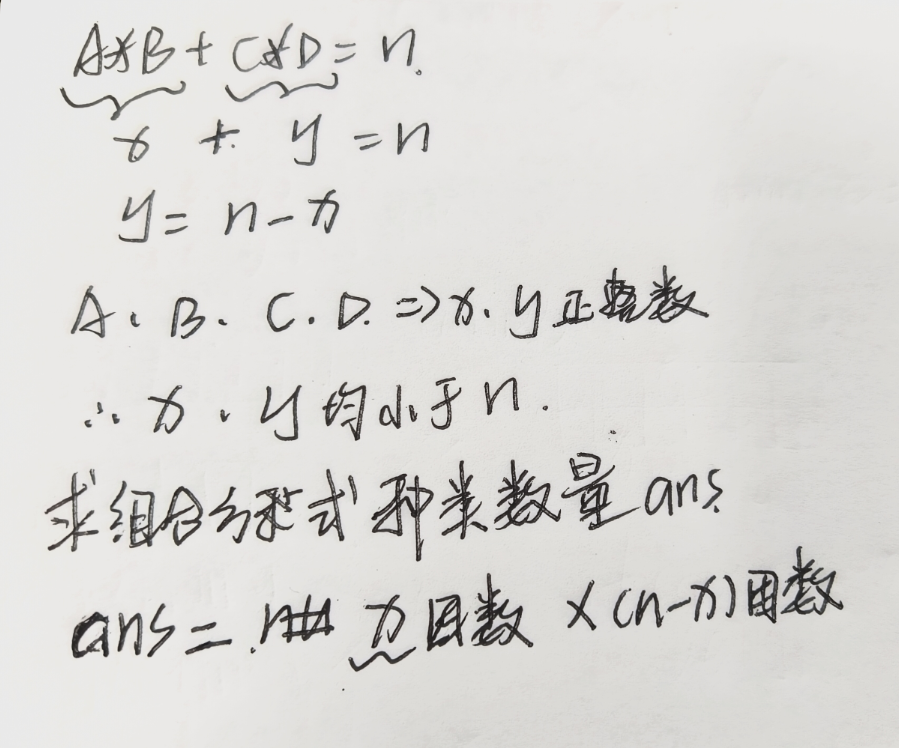 A*B + C*D = n.
x + y = n
y = n - x
A、B、C、D. => x、y 正整数
∴ x、y 均小于 n.
求组合方式种类数量 ans.
ans = x 因数 × (n-x) 因数